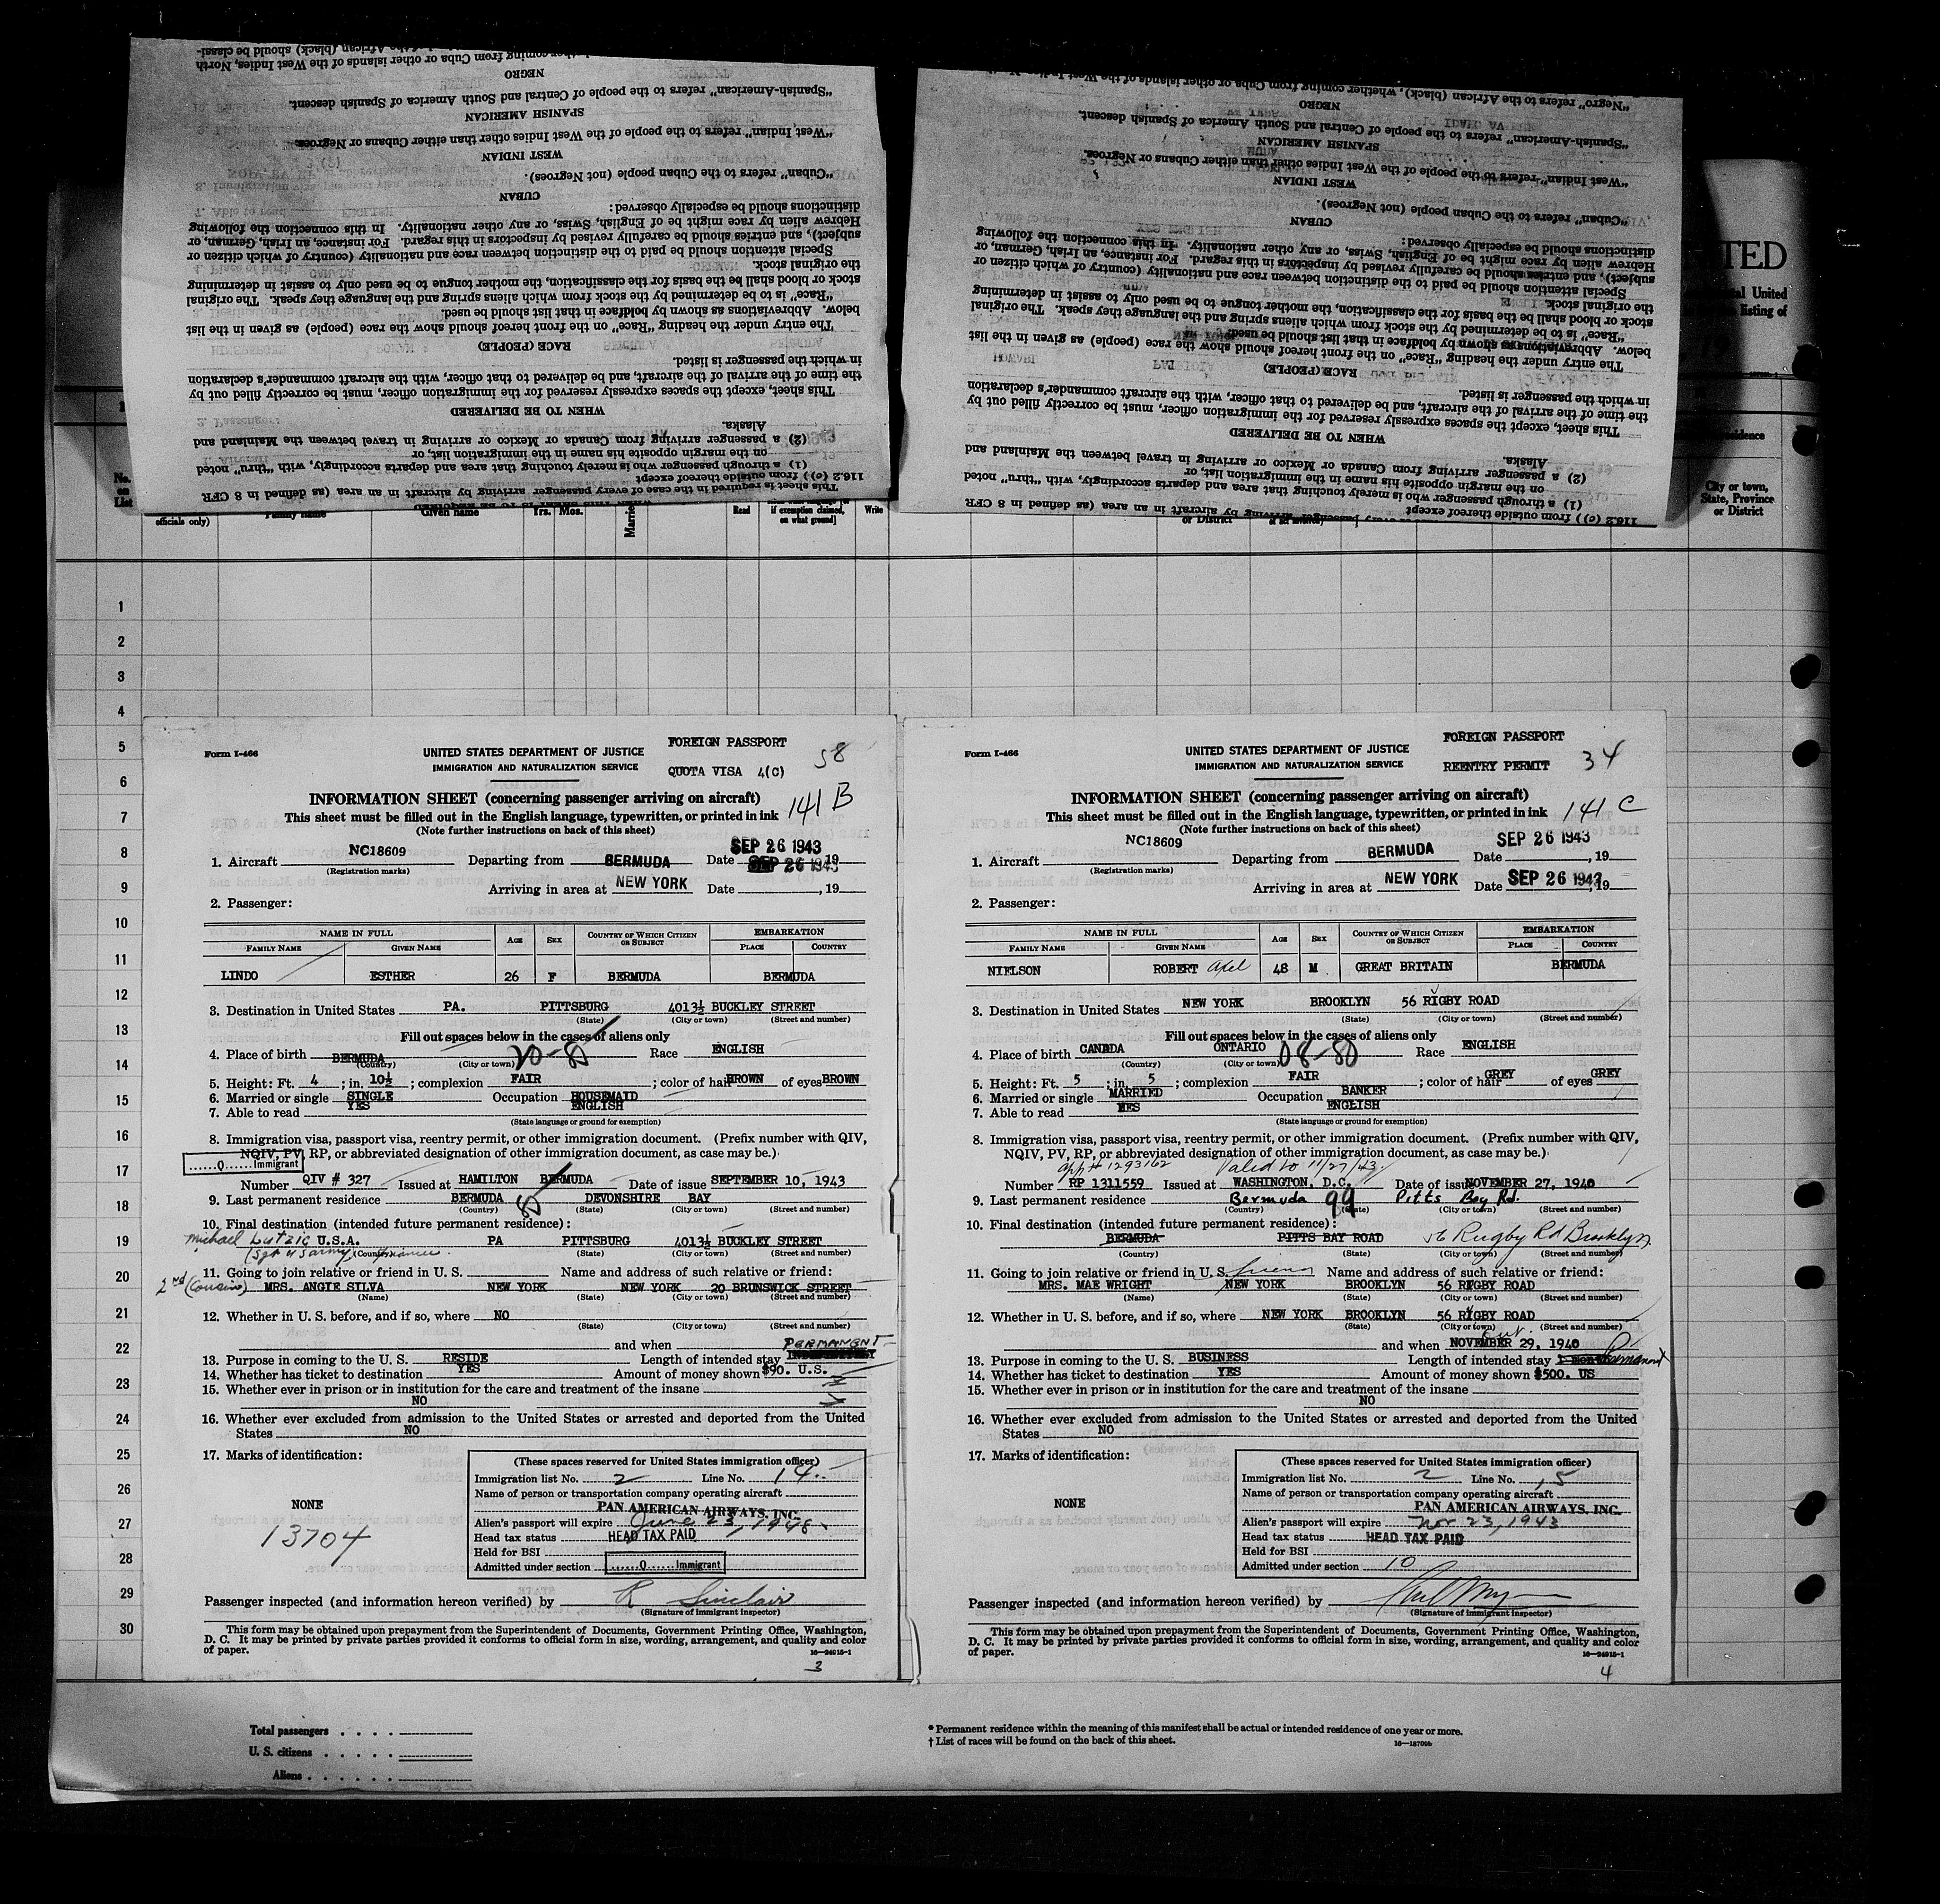 "Negro" refers to the African (black), whether coming from Cuba or other islands of the West Indies, North
NEGRO
"Spanish-American" refers to the people of Central and South America of Spanish descent.
SPANISH AMERICAN
"West Indian" refers to the people of the West Indies other than either Cubans or Negroes.
WEST INDIAN
"Cuban" refers to the Cuban people (not Negroes).
CUBAN
distinctions should be especially observed:
Hebrew alien by race might be of English, Swiss, or any other nationality. In this connection the following
subject), and entries should be carefully revised by inspectors in this regard. For instance, an Irish, German, or
Special attention should be paid to the distinction between race and nationality (country of which citizen or
the original stock.
stock or blood shall be the basis for the classification, the mother tongue to be used only to assist in determining
"Race" is to be determined by the stock from which aliens spring and the language they speak. The original
below. Abbreviations as shown by boldface in that list should be used.
The entry under the heading "Race" on the front hereof should show the race (people) as given in the list
RACE (PEOPLE)
in which the passenger is listed.
the time of the arrival of the aircraft, and be delivered to that officer, with the aircraft commander's declaration
This sheet, except the spaces expressly reserved for the immigration officer, must be correctly filled out by
WHEN TO BE DELIVERED
Alaska.
(2) a passenger arriving from Canada or Mexico or arriving in travel between the Mainland and
on the margin opposite his name in the immigration list, or
(1) a through passenger who is merely touching that area and departs accordingly, with "thru" noted
116.2 (c)) from outside thereof except
This sheet is required in the case of every passenger arriving by aircraft in an area (as defined in 8 CFR
TED
No. on List
officials only)
Family name
Given name
Yrs. Mos.
Read
if exemption claimed, on what ground]
Write
or District
City or town, State, Province or District
1
2
3
4
5
6
7
8
9
10
11
12
13
14
15
16
17
18
19
20
21
22
23
24
25
26
27
28
29
30
Form I-466
UNITED STATES DEPARTMENT OF JUSTICE
IMMIGRATION AND NATURALIZATION SERVICE
FOREIGN PASSPORT
QUOTA VISA 4(C)
58
141 B
INFORMATION SHEET (concerning passenger arriving on aircraft)
This sheet must be filled out in the English language, typewritten, or printed in ink
(Note further instructions on back of this sheet)
SEP 26 1943
1. Aircraft NC18609 Departing from BERMUDA Date SEP 26 1943, 19
(Registration marks)
Arriving in area at NEW YORK Date , 19
2. Passenger:
NAME IN FULL AGE SEX COUNTRY OF WHICH CITIZEN OR SUBJECT EMBARKATION
FAMILY NAME GIVEN NAME PLACE COUNTRY
LINDO ESTHER 26 F BERMUDA BERMUDA
3. Destination in United States PA. PITTSBURG 4013½ BUCKLEY STREET
(State) (City or town) (Street and number)
Fill out spaces below in the cases of aliens only
4. Place of birth BERMUDA 20-80 Race ENGLISH
(Country) (City or town)
5. Height: Ft. 4 ; in. 10½ ; complexion FAIR ; color of hair BROWN of eyes BROWN
6. Married or single SINGLE Occupation HOUSEMAID
7. Able to read YES ENGLISH
(State language or ground for exemption)
8. Immigration visa, passport visa, reentry permit, or other immigration document. (Prefix number with QIV,
NQIV, PV, RP, or abbreviated designation of other immigration document, as case may be.)
......Q...... Immigrant
Number QIV # 327 Issued at HAMILTON BERMUDA Date of issue SEPTEMBER 10, 1943
9. Last permanent residence BERMUDA 80 DEVONSHIRE BAY
(Country) (State) (City or town) (Street and number)
10. Final destination (intended future permanent residence):
Michael Lutzic U.S.A. PA PITTSBURG 4013½ BUCKLEY STREET
(Sgt US army) (Country) (State) (City or town) (Street and number)
11. Going to join relative or friend in U. S. Name and address of such relative or friend:
2nd (Cousin) MRS. ANGIE SILVA NEW YORK NEW YORK 20 BRUNSWICK STREET
(Name) (State) (City or town) (Street and number)
12. Whether in U. S. before, and if so, where NO
(State) (City or town) (Street and number)
and when PERMANENT
13. Purpose in coming to the U. S. RESIDE Length of intended stay
14. Whether has ticket to destination YES Amount of money shown $90. U.S.
15. Whether ever in prison or in institution for the care and treatment of the insane
NO
16. Whether ever excluded from admission to the United States or arrested and deported from the United
States NO
17. Marks of identification:
NONE
13704
(These spaces reserved for United States immigration officer)
Immigration list No. 2 Line No. 14
Name of person or transportation company operating aircraft
PAN AMERICAN AIRWAYS, INC.
Alien's passport will expire June 23, 1948
Head tax status HEAD TAX PAID
Held for BSI
Admitted under section ......Q...... Immigrant
Passenger inspected (and information hereon verified) by R Sinclair
(Signature of immigrant inspector)
This form may be obtained upon prepayment from the Superintendent of Documents, Government Printing Office, Washington,
D. C. It may be printed by private parties provided it conforms to official form in size, wording, arrangement, and quality and color
of paper.
16—24015-1
3
Form I-466
UNITED STATES DEPARTMENT OF JUSTICE
IMMIGRATION AND NATURALIZATION SERVICE
FOREIGN PASSPORT
REENTRY PERMIT
34
141 C
INFORMATION SHEET (concerning passenger arriving on aircraft)
This sheet must be filled out in the English language, typewritten, or printed in ink
(Note further instructions on back of this sheet)
1. Aircraft NC18609 Departing from BERMUDA Date SEP 26 1943, 19
(Registration marks)
Arriving in area at NEW YORK Date SEP 26 1943, 19
2. Passenger:
NAME IN FULL AGE SEX COUNTRY OF WHICH CITIZEN OR SUBJECT EMBARKATION
FAMILY NAME GIVEN NAME PLACE COUNTRY
NIELSON ROBERT Apel 48 M GREAT BRITAIN BERMUDA
3. Destination in United States NEW YORK BROOKLYN 56 RIGBY ROAD
(State) (City or town) (Street and number)
Fill out spaces below in the cases of aliens only
4. Place of birth CANADA ONTARIO 08-80 Race ENGLISH
(Country) (City or town)
5. Height: Ft. 5 ; in. 5 ; complexion FAIR ; color of hair GREY of eyes GREY
6. Married or single MARRIED Occupation BANKER
7. Able to read YES ENGLISH
(State language or ground for exemption)
8. Immigration visa, passport visa, reentry permit, or other immigration document. (Prefix number with QIV,
NQIV, PV, RP, or abbreviated designation of other immigration document, as case may be.)
app # 1293162 Valid to 11/27/43.
Number RP 1311559 Issued at WASHINGTON, D.C. Date of issue NOVEMBER 27, 1940
9. Last permanent residence Bermuda 99 Pitts Bay Rd.
(Country) (State) (City or town) (Street and number)
10. Final destination (intended future permanent residence):
BERMUDA PITTS BAY ROAD 56 Rugby Rd Brooklyn
(Country) (State) (City or town) (Street and number)
11. Going to join relative or friend in U. S. friend Name and address of such relative or friend:
MRS. MAE WRIGHT NEW YORK BROOKLYN 56 RIGBY ROAD
(Name) (State) (City or town) (Street and number)
12. Whether in U. S. before, and if so, where NEW YORK BROOKLYN 56 RIGBY ROAD
(State) (City or town) (Street and number)
and when NOVEMBER 29, 1940
13. Purpose in coming to the U. S. BUSINESS Length of intended stay Permanent
14. Whether has ticket to destination YES Amount of money shown $500. US
15. Whether ever in prison or in institution for the care and treatment of the insane
NO
16. Whether ever excluded from admission to the United States or arrested and deported from the United
States NO
17. Marks of identification:
NONE
(These spaces reserved for United States immigration officer)
Immigration list No. 2 Line No. 15
Name of person or transportation company operating aircraft
PAN AMERICAN AIRWAYS, INC.
Alien's passport will expire Nov 23, 1943
Head tax status HEAD TAX PAID
Held for BSI
Admitted under section 10
Passenger inspected (and information hereon verified) by
(Signature of immigrant inspector)
This form may be obtained upon prepayment from the Superintendent of Documents, Government Printing Office, Washington,
D. C. It may be printed by private parties provided it conforms to official form in size, wording, arrangement, and quality and color
of paper.
16—24015-1
4
Total passengers . . . .
U. S. citizens . . . . .
Aliens . . . . . .
* Permanent residence within the meaning of this manifest shall be actual or intended residence of one year or more.
† List of races will be found on the back of this sheet.
16—18709b